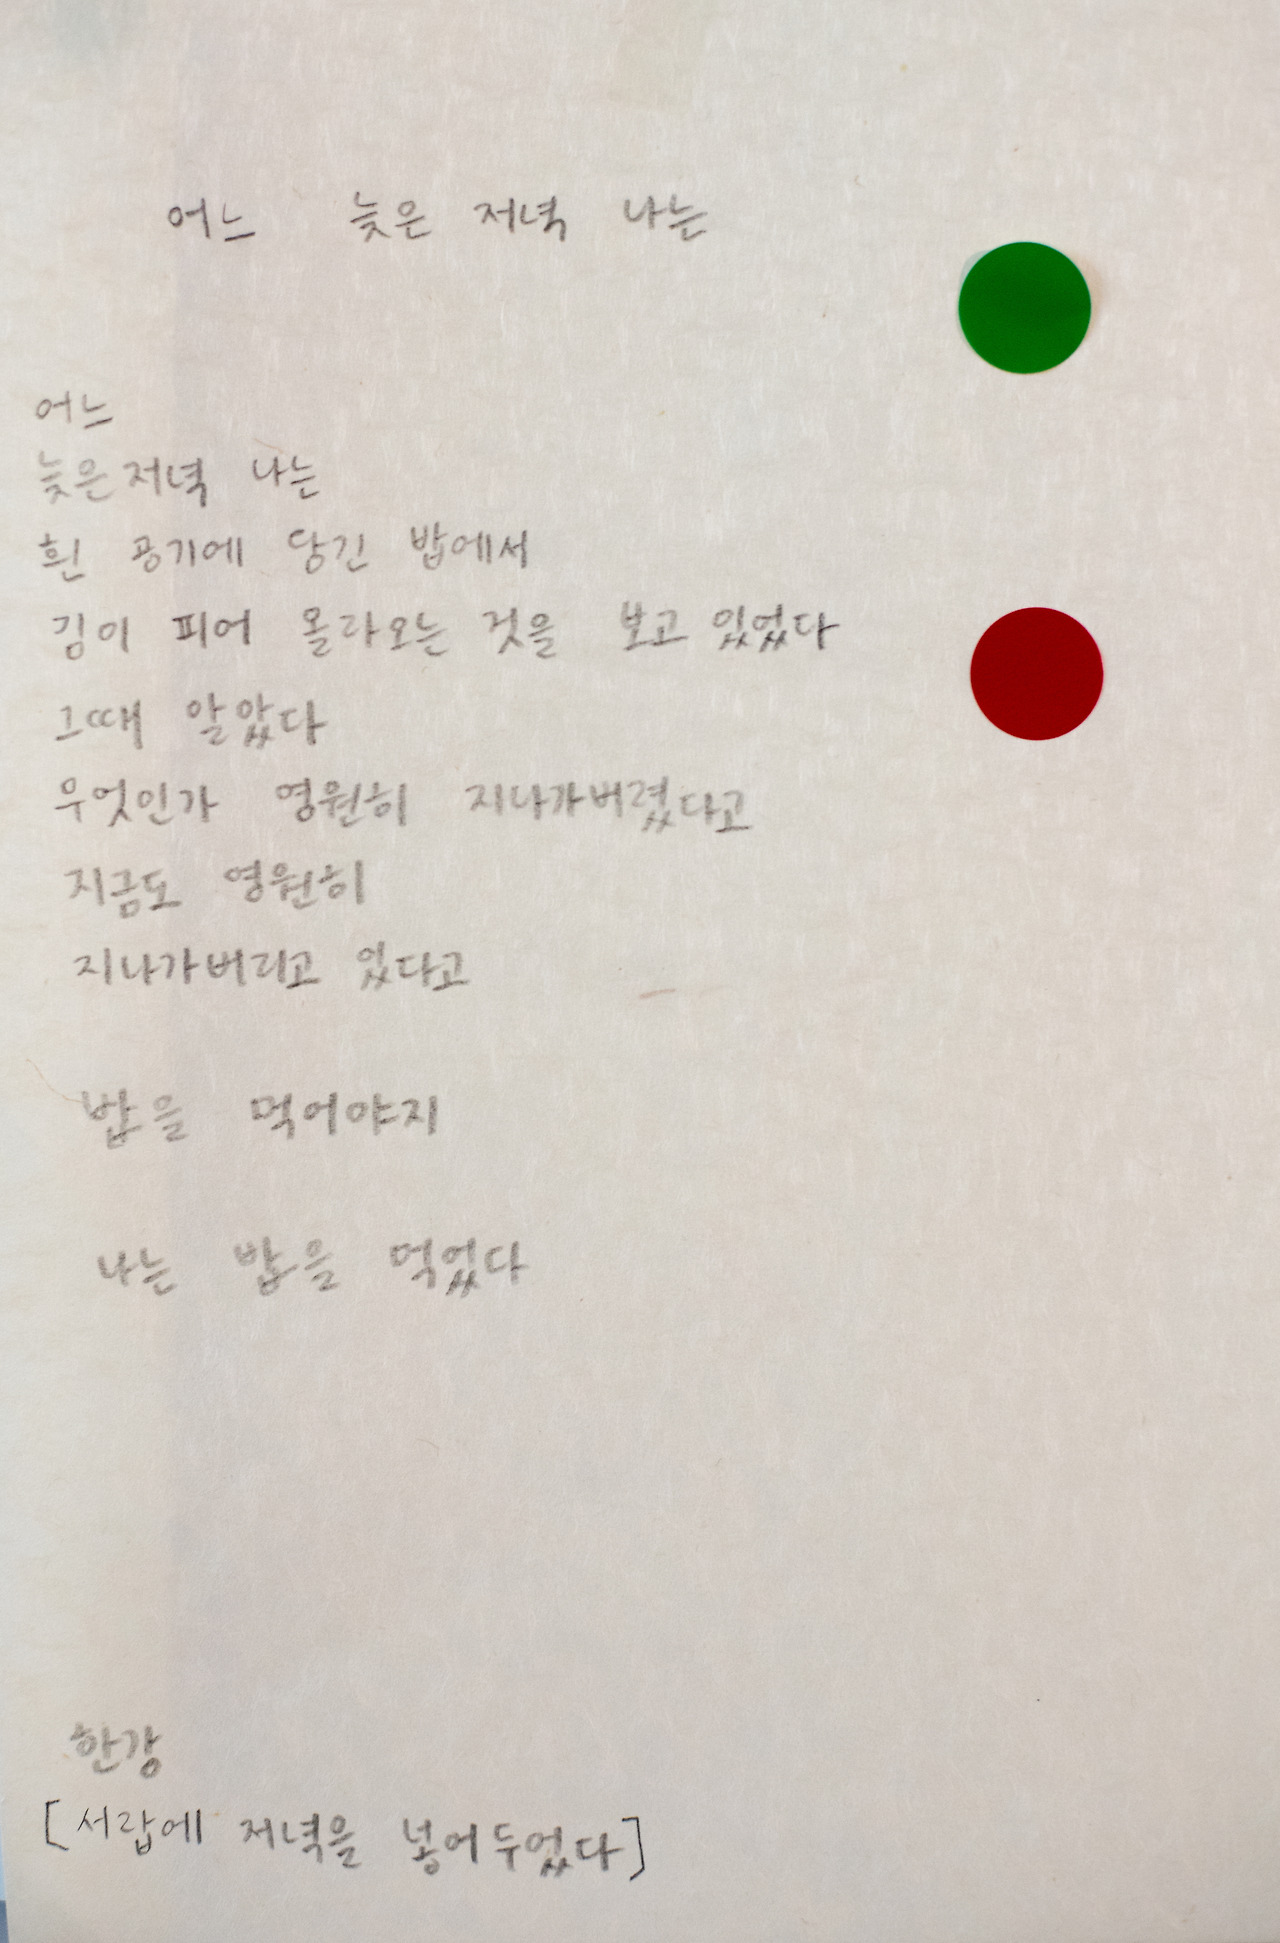 어느 늦은 저녁 나는
어느
늦은 저녁 나는
흰 공기에 당긴 밥에서
김이 피어 올라오는 것을 보고 있었다
그때 알았다
무엇인가 영원히 지나가버렸다고
지금도 영원히
지나가버리고 있다고
밥을 먹어야지
나는 밥을 먹었다
한강
[서랍에 저녁을 넣어두었다]